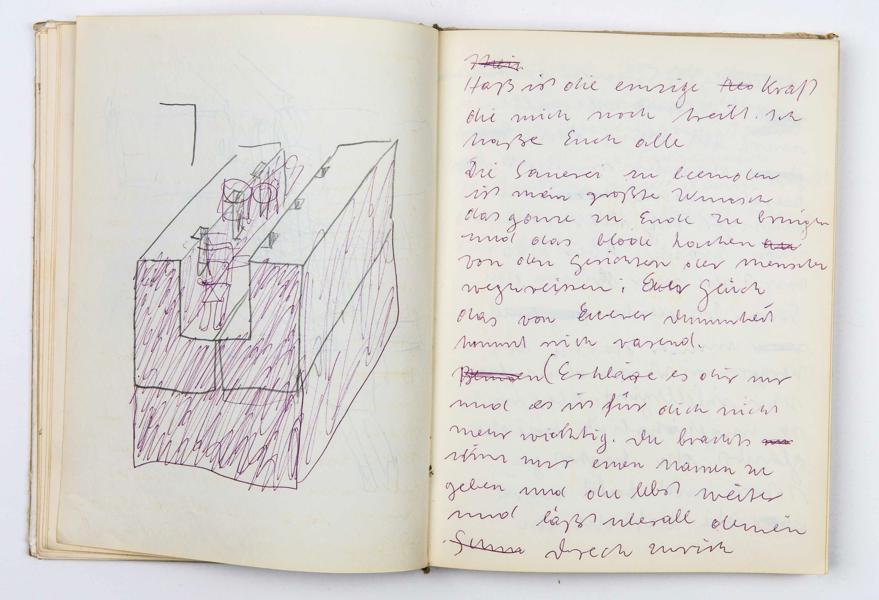 Haß ist die einzige Kraft
die mich noch treibt. Ich
hasse Euch alle
Die Sauerei zu beenden
ist mein größte Wunsch
das ganze zu Ende zu bringen
und das blöde Lachen
von den Gesichtern der Menschen
wegzureissen;
das von Euerer Dummheit
kommt mich rasend.
(Erkläre es dir nur
und es ist für dich nicht
mehr wichtig. Du brauchst
nur einen Namen zu
geben und du lebst weiter
und läßt überall deinen
Dreck zurück